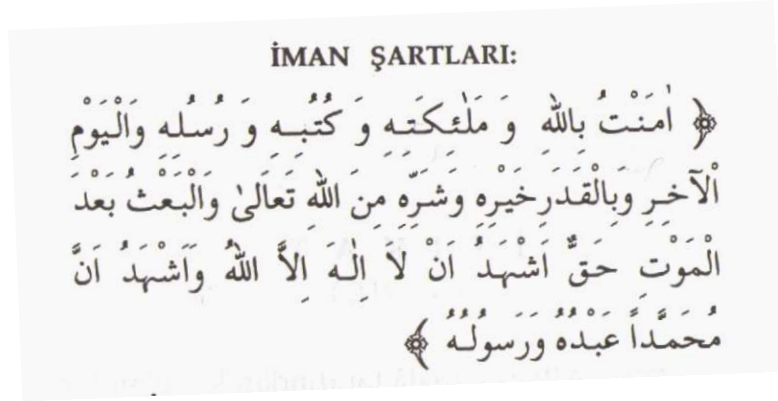 İMAN ŞARTLARI:
﴿ اٰمَنْتُ بِاللّٰهِ وَ مَلٰئِكَتِهِ وَ كُتُبِهِ وَ رُسُلِهِ وَالْيَوْمِ
الْآخِرِ وَبِالْقَدَرِ خَيْرِهِ وَشَرِّهِ مِنَ اللّٰهِ تَعَالٰى وَالْبَعْثُ بَعْدَ
الْمَوْتِ حَقٌّ اَشْهَدُ اَنْ لَا اِلٰهَ اِلاَّ اللّٰهُ وَاَشْهَدُ اَنَّ
مُحَمَّداً عَبْدُهُ وَرَسُولُهُ ﴾